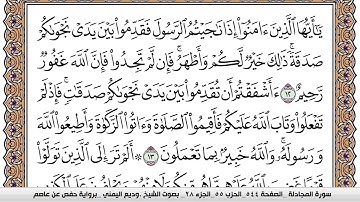 يَٰٓأَيُّهَا ٱلَّذِينَ ءَامَنُوٓا۟ إِذَا نَٰجَيْتُمُ ٱلرَّسُولَ فَقَدِّمُوا۟ بَيْنَ يَدَىْ نَجْوَىٰكُمْ
صَدَقَةً ۚ ذَٰلِكَ خَيْرٌ لَّكُمْ وَأَطْهَرُ ۚ فَإِن لَّمْ تَجِدُوا۟ فَإِنَّ ٱللَّهَ غَفُورٌ
رَّحِيمٌ ١٢ ءَأَشْفَقْتُمْ أَن تُقَدِّمُوا۟ بَيْنَ يَدَىْ نَجْوَىٰكُمْ صَدَقَٰتٍ ۚ فَإِذْ لَمْ
تَفْعَلُوا۟ وَتَابَ ٱللَّهُ عَلَيْكُمْ فَأَقِيمُوا۟ ٱلصَّلَوٰةَ وَءَاتُوا۟ ٱلزَّكَوٰةَ وَأَطِيعُوا۟ ٱللَّهَ
وَرَسُولَهُۥ ۚ وَٱللَّهُ خَبِيرٌۢ بِمَا تَعْمَلُونَ ١٣ ۞ أَلَمْ تَرَ إِلَى ٱلَّذِينَ تَوَلَّوْا۟
سورة المجادلة _ الصفحة ٥٤٤ _ الحزب ٥٥ _ الجزء ٢٨ _ بصوت الشيخ _ وديع اليمني _ برواية حفص عن عاصم